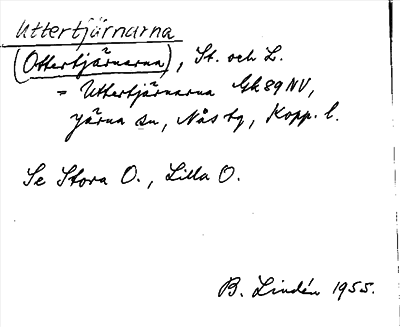 Uttertjärnarna
(Ottertjärnarna), St. och L.
= Uttertjärnarna Gk 89 NV,
Järna sn, Nås tg, Kopp. l.
Se Stora O., Lilla O.
B. Lindén 1955.